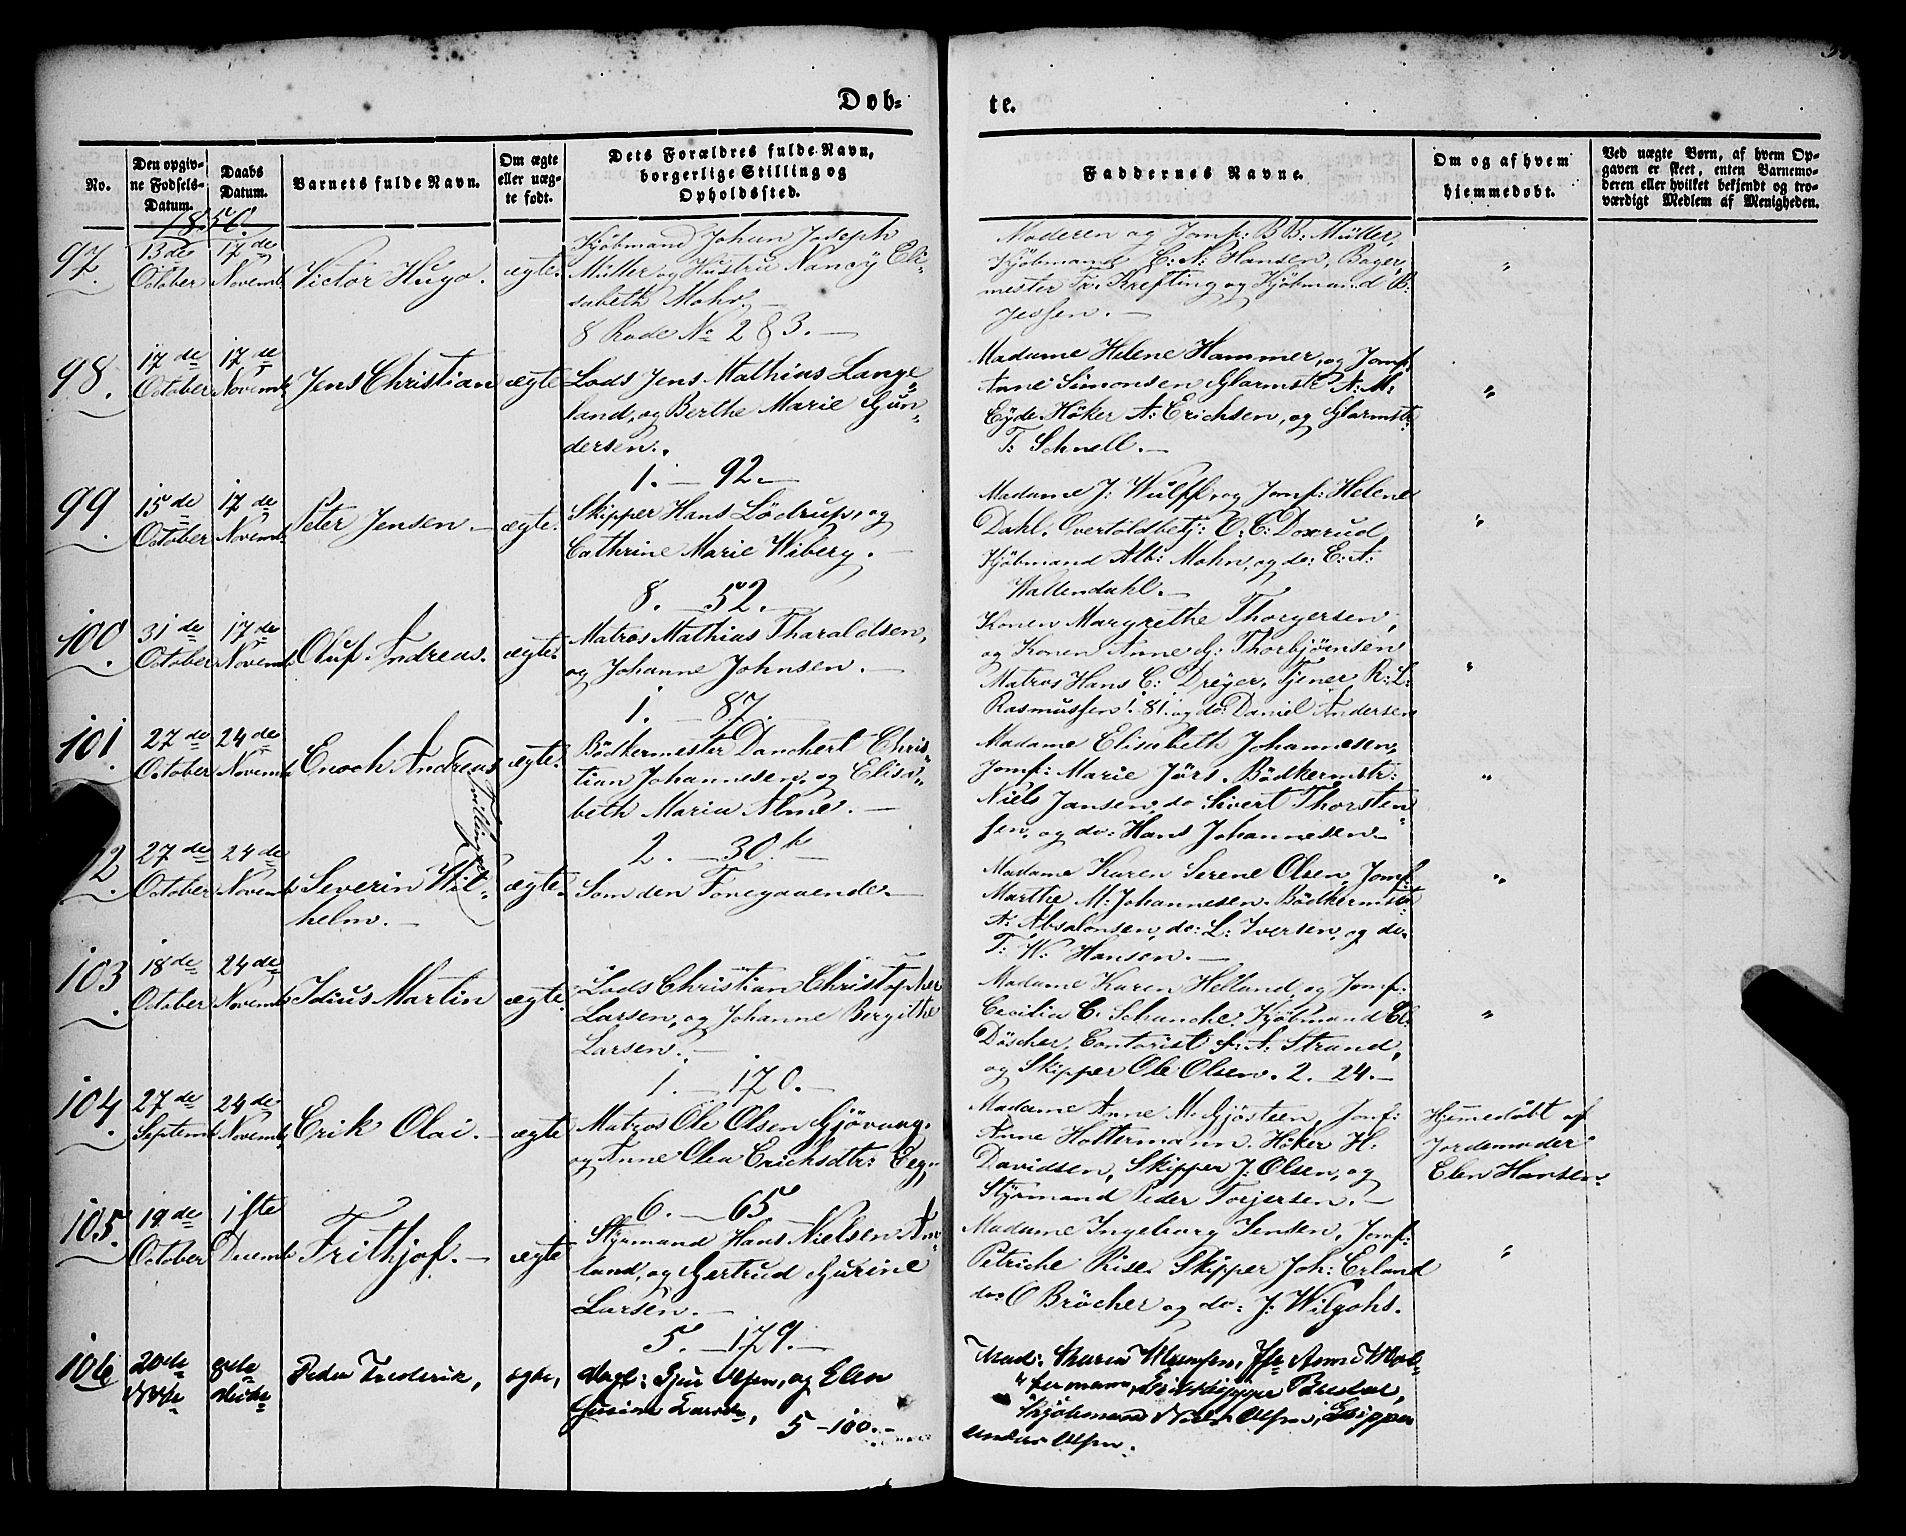 Døb-
te.
No.
Den opgiv-
ne Fødsels-
Datum.
Daabs
Datum.
Barnets fulde Navn.
Om ægte
eller uæg-
te født.
Dets Forældres fulde Navn,
borgerlige Stilling og
Opholdssted.
Faddernes Navne.
Om og af hvem
hjemmedøbt.
Ved uægte Børn, af hvem Op-
gaven er skeet, enten Barnemo-
deren eller hvilket bekjendt og tro-
værdigt Medlem af Menigheden.
1850.
97.
13de
October
17de
Novemb.
Victor Hugo.
ægte.
Kjöbmand Johan Joseph
Müller og Hustru Nancÿ Eli-
sabeth Mohr.
8 Rode No 2 & 3.
Moderen og Jomf: B B: Müller,
Kjöbmand C: N: Hansen, Bager-
mester Fr. Krefting og Kjöbmand B:
Jessen.
"
98.
17de
October
17de
Novemb.
Jens Christian
ægte
Lods Jens Mathias Lange
land, og Berthe Marie Gun-
dersen.
1. — 92.
Madame Helene Hammer, og Jomf:
Anne Simonsen Glarmstr N: M:
Eyde Höker A: Erichsen, og Glarmstr.
T: Schnell.
"
99.
15de
October
17de
Novemb.
Peter Jensen.
ægte.
Skipper Hans Lödrup, og
Cathrine Marie Wiberg.
8. — 52.
Madame J: Wulff, og Jomf: Helene
Dahl. Overtoldbetj: O: C: Doxrud,
Kjöbmand Alb: Mohn, og do: E: A:
Wallendahl.
"
100.
31de
October
17de
Novemb.
Oluf Andreas.
ægte.
Matros Mathias Tharaldsen,
og Johanne Johnsen.
1. — 87.
Konen Margrethe Thorgersen,
og Konen Anne G: Thorbjörnsen
Matros Hans C: Dreÿer, Tjener R: L:
Rasmussen 1. 81. og do: Daniel Andersen
"
101.
27de
October
24de
Novemb.
Enoch Andreas
Tvillinger
ægte.
Bödkermester Danchert Chris-
tian Johannesen, og Elisa-
beth Maria Alme.
2. — 30.b
Madame Elisabeth Johannesen,
Jomf: Marie Jörs. Bödkermstr:
Niels Jansen, do Sivert Thorsten-
sen, og do: Hans Johannesen.
"
2.
27de
October
24de
Novemb.
Severin Wil-
helm.
ægte.
Som den Foregaaende.
Madame Karen Serene Olsen, Jomf:
Marthe M: Johannesen. Bödkermstr.
A: Absalonsen, do: L: Iversen, og do:
T: W: Hansen.
"
103
18de
October
24de
Novemb.
Idius Martin
ægte.
Lods Christian Christopher
Larsen, og Johanne Bergithe
Larsen.
1. — 170.
Madame Karen Helland, og Jomf:
Cecilia C. Schanche. Kjöbmand Cl.
Döscher, Contorist S: A: Strand,
og Skipper Ole Olsen. 2. 24.
"
104.
27de
Septemb.
24de
Novemb.
Erik Olai.
ægte
Matros Ole Olsen Gjövaag.
og Anne Olea Erichsdtr: Eeg.
6. — 65
Madame Anne M. Gjösteen, Jomf:
Anne Holtermann. Höker H:
Davidsen, Skipper J: Olsen, og
Stÿrmand Peder Torjersen.
Hjemedöbt af
Jordemoder
Elen Hansen.
105.
19de
October
1ste
Decemb
Frithjof.
ægte
Stÿrmand Hans Nielsen Am-
land, og Gertrud Gurine
Larsen.
5. — 179.
Madame Ingeborg Jensen, Jomf:
Petriche Rise. Skipper Joh: Erland
do: O Bröcher og do: J: Wilgohs.
"
106
20de
8de
Peder Frederik,
ægte,
Olsen, og Elen
Gurine Larsdr,
5 - 100.
Mad: Maria
Kjøbmand Olsen, Skipper
Anders Olsen.